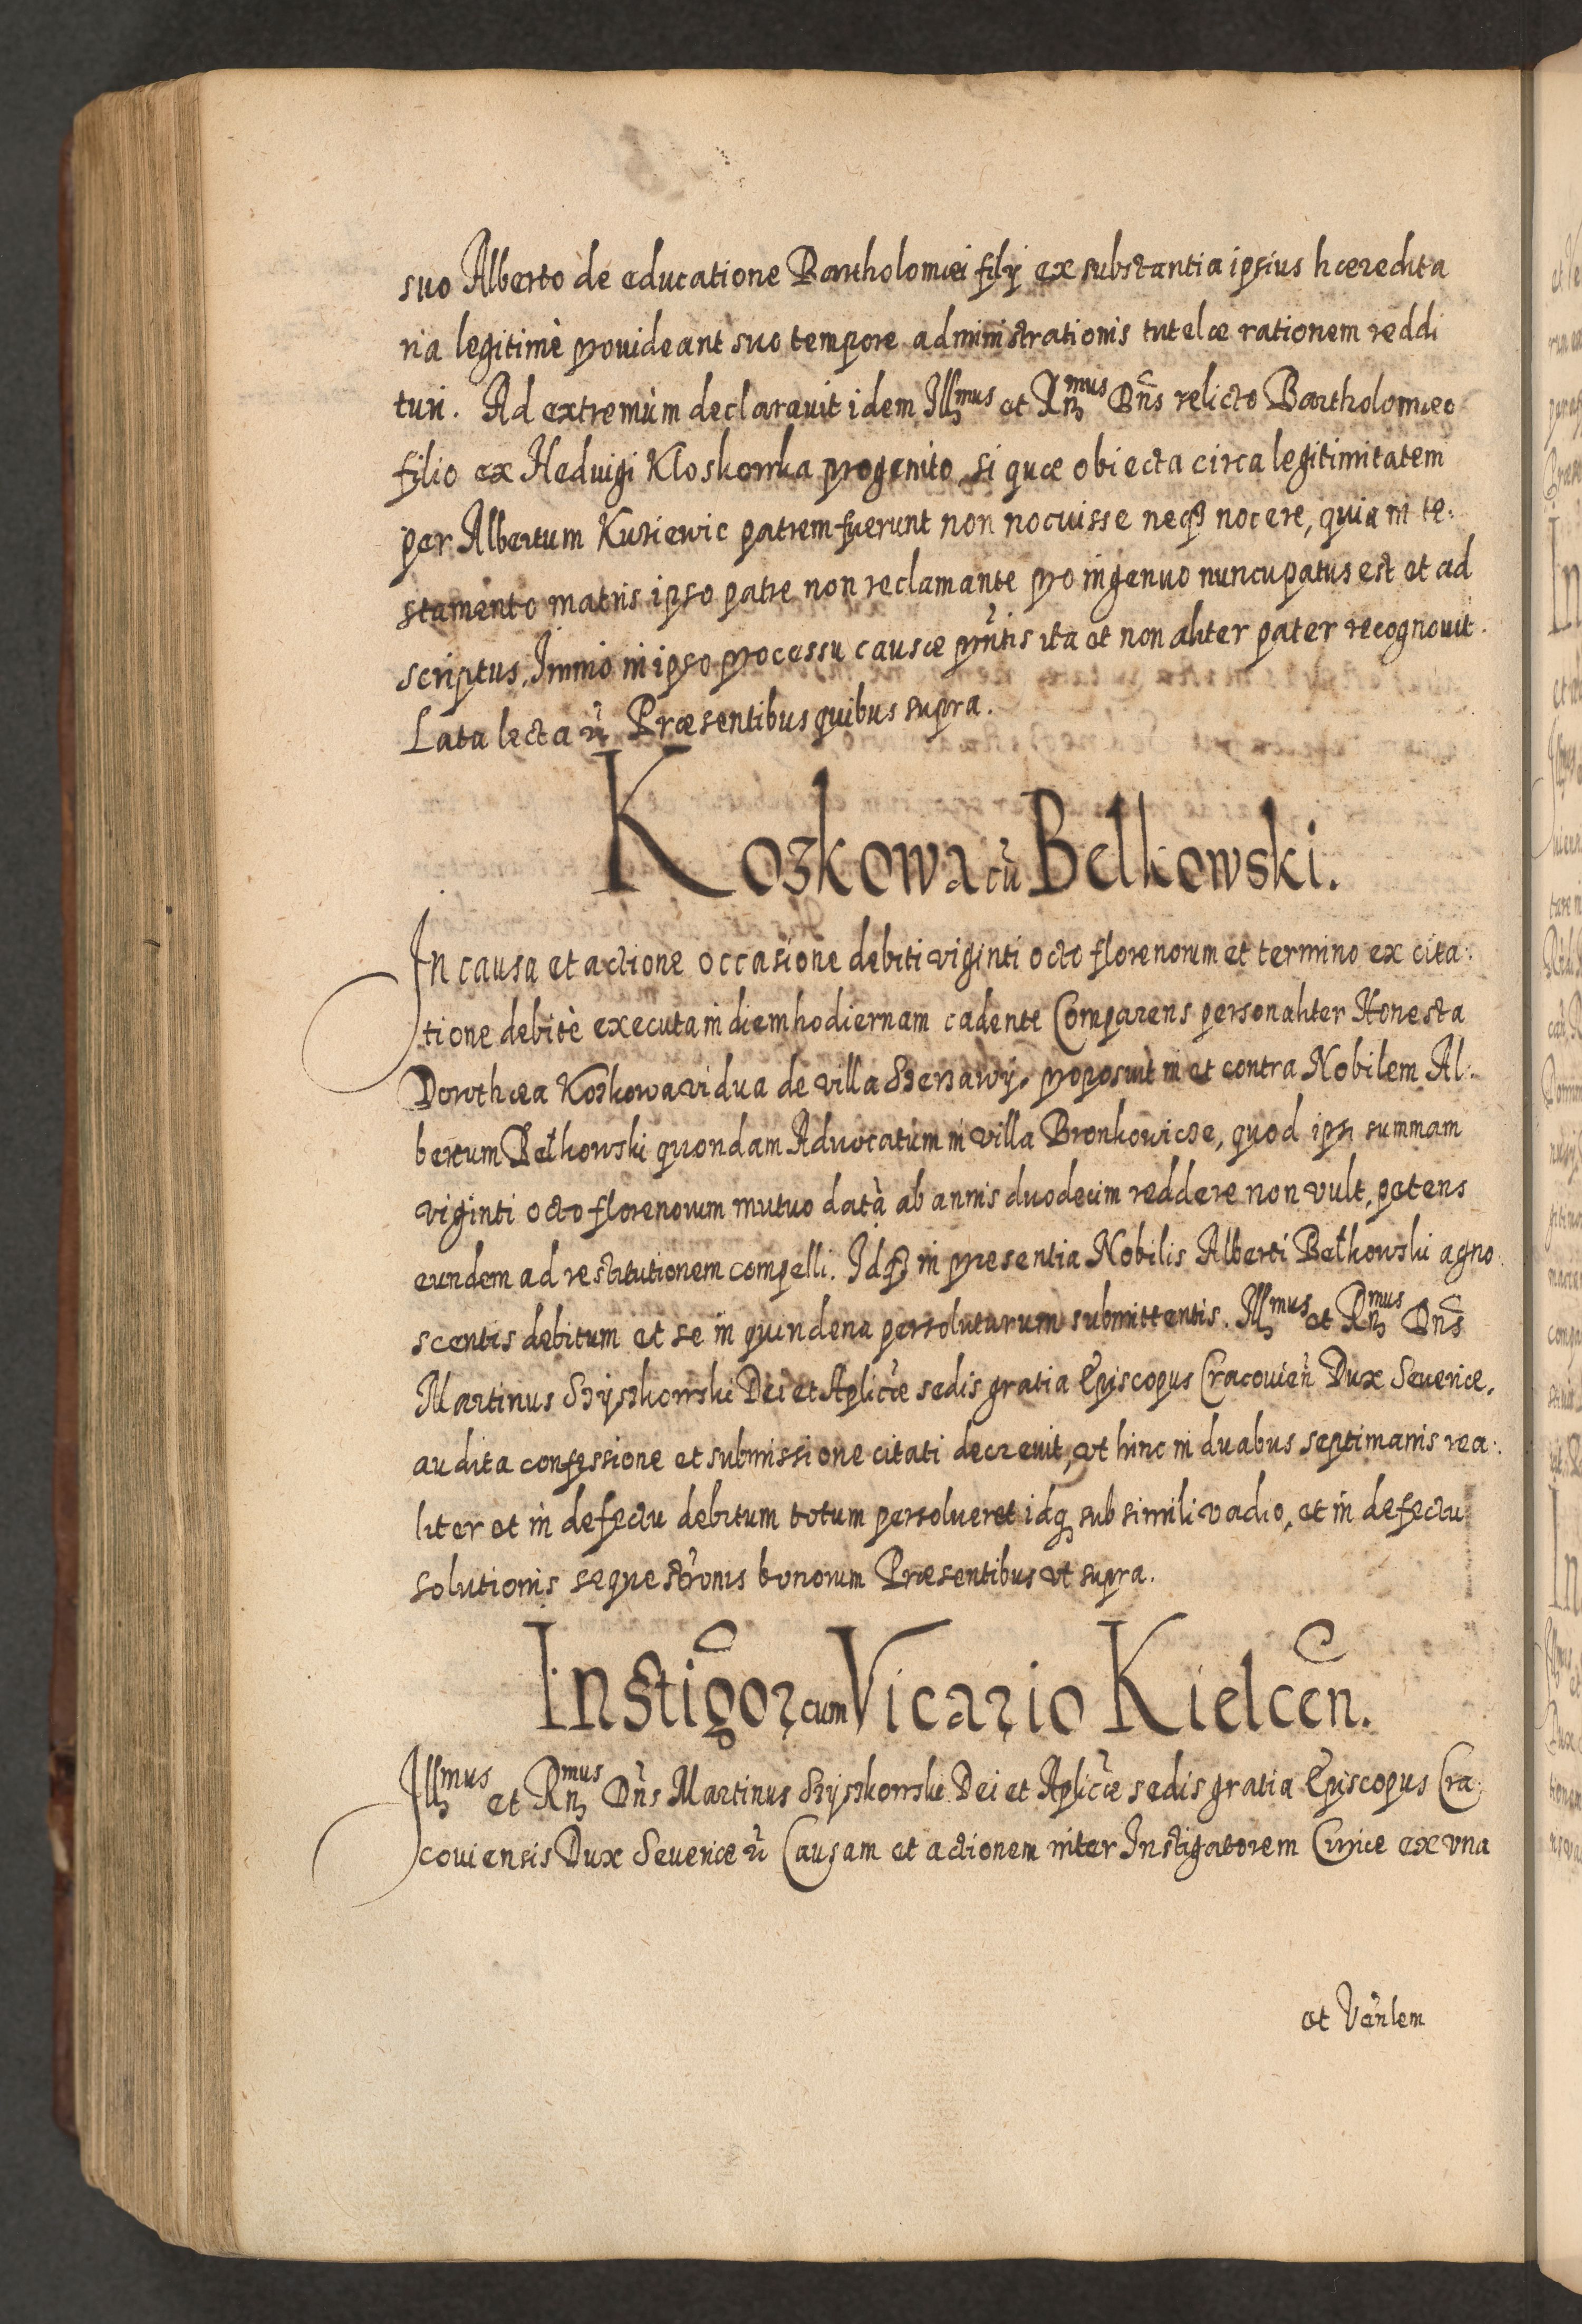 suo Alberto de educatione Bartholomæi filij ex substantia ipsius hæredita
ria legitimè prouideant suo tempore administrationis tutelæ rationem reddi
turi. Ad extremùm declarauit idem Illmus et Rnmus Dns relicto Bartholomæo
filio ex Heduigi Kloskowka progenito, si quæ obiecta circa legitimitatem
per Albertum Kusiewic patrem fuerunt non nocuisse neqꝫ nocere, quia in te:
stamento matris ipso patre non reclamante pro ingenuo nuncupatus est et ad
scriptus, Immò in ipso processu causæ pñtis ita et non aliter pater recognouit.
Lata lecta ũ Præsentibus quibus supra.
Kozkowa cũ Bełkowski.
In causa et actione occasione debiti viginti octo florenorum et termino ex cita:
tione debitè executa in diem hodiernam cadente Comparens personaliter Honesta
Dorothæa Koskowa vidua de villa proposuit in et contra Nobilem Al:
bertum Bełkowski quondam Aduocatum in villa Bronkowicze, quod ipsi summam
viginti octo florenorum mutuo datà ab annis duodecim reddere non vult, petens
eundem ad restitutionem compelli. Idqꝫ in presentia Nobilis Alberti Bełkowski agno:
scentis debitum et se in quindena persoluturum submittentis. Illmus et Rnmus Dns
Martinus Szyszkowski Dei et Aplicæ sedis gratia Episcopus Cracouieñ Dux Seueriæ,
audita confessione et submissione citati decreuit, vt hinc in duabus septimanis rea:
liter et in defectu debitum totum persolueret idqꝫ sub simili vadio, et in defectu
solutionis sequestrõnis bonorum Præsentibus vt supra.
Instigor cum Vicario Kielcen.
Illmus et Rnmus Dñs Martinus Szyszkowski Dei et Aplicæ sedis gratia Episcopus Cra:
couiensis Dux Seueriæ ũ Causam et actionem inter Instigatorem Curiæ ex vna
et Veñlem